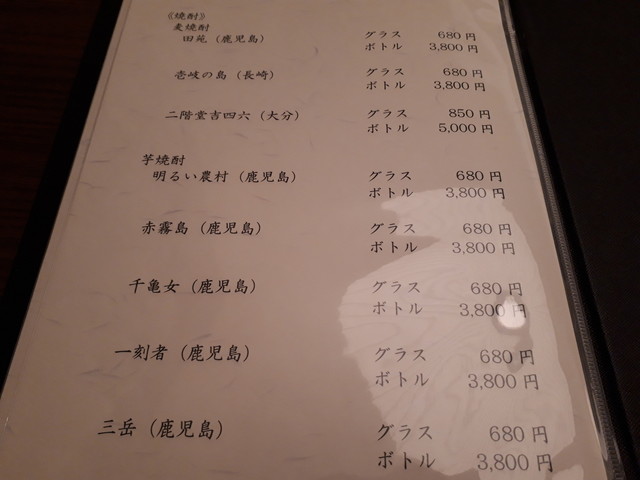 《焼酎》
麦焼酎
田苑（鹿児島） グラス 680円
ボトル 3,800円
壱岐の島（長崎） グラス 680円
ボトル 3,800円
二階堂吉四六（大分） グラス 850円
ボトル 5,000円
芋焼酎
明るい農村（鹿児島） グラス 680円
ボトル 3,800円
赤霧島（鹿児島） グラス 680円
ボトル 3,800円
千亀女（鹿児島） グラス 680円
ボトル 3,800円
一刻者（鹿児島） グラス 680円
ボトル 3,800円
三岳（鹿児島） グラス 680円
ボトル 3,800円